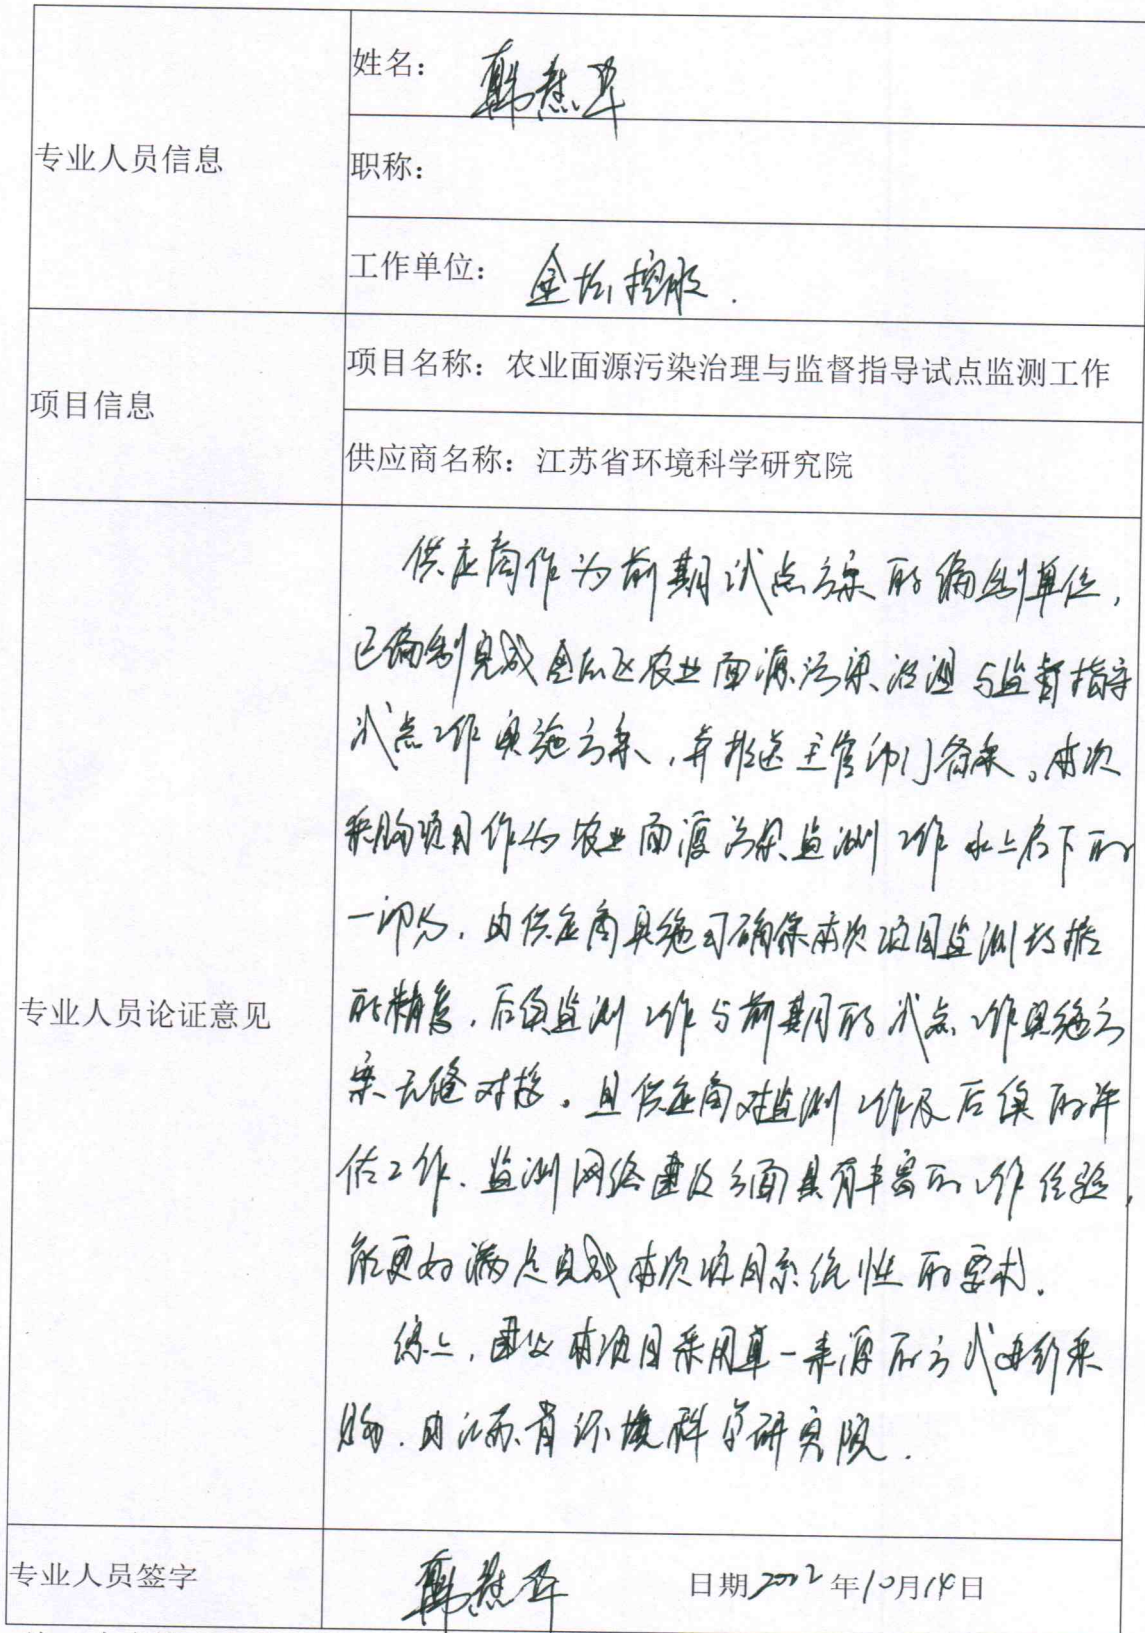 专业人员信息
姓名：韩慧军
职称：
工作单位：金坛控股.
项目信息
项目名称：农业面源污染治理与监督指导试点监测工作
供应商名称：江苏省环境科学研究院
专业人员论证意见
供应商作为前期试点方案的编制单位，
已编制完成金坛区农业面源污染治理与监督指导
试点工作实施方案，并报送主管部门备案。本次
采购项目作为农业面源污染监测工作承上启下的
一部分，由供应商实施可确保本次项目监测数据
的精度，后续监测工作与前期的试点工作实施方
案无缝对接。且供应商对监测工作及后续的评
估工作、监测网络建设方面具有丰富的工作经验，
能更好满足完成本次项目系统性的要求.
综上，建议本项目采用单一来源的方式进行采
购.由江苏省环境科学研究院.
专业人员签字
韩慧军
日期2022年10月14日